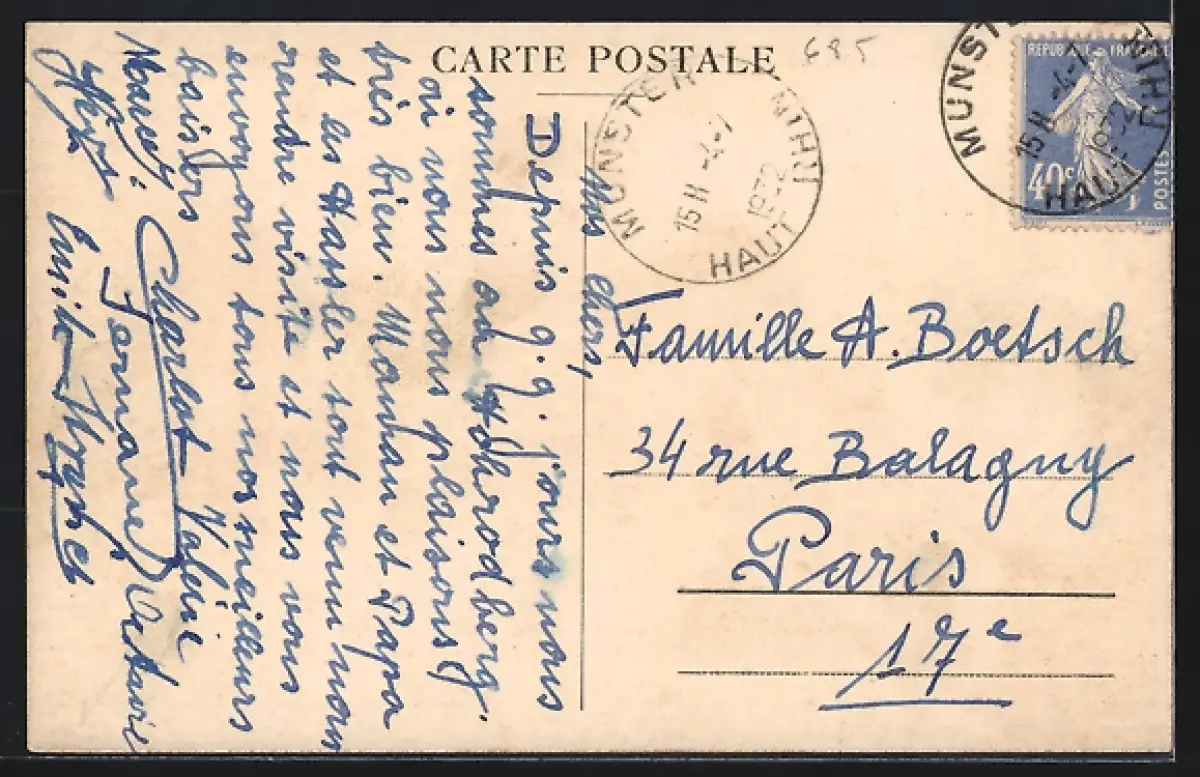 CARTE POSTALE
685
MUNSTER
15 H
4-7
1932
HAUT
RHIN
MUNSTER
15 H
4-7
1932
HAUT
RHIN
REPUBLIQUE FRANÇAISE
40c
POSTES
Mes chers,
Depuis q.q. jours nous
sommes au Hohrodberg.
où nous nous plaisons
très bien. Maman et Papa
et les Hassler sont venu nous
rendre visite et nous vous
envoyons tous nos meilleurs
baisers Valérie
Marcel Charlot Octavie
Germaine
Emile
Famille A. Boetsch
34 rue Balagny
Paris
17e